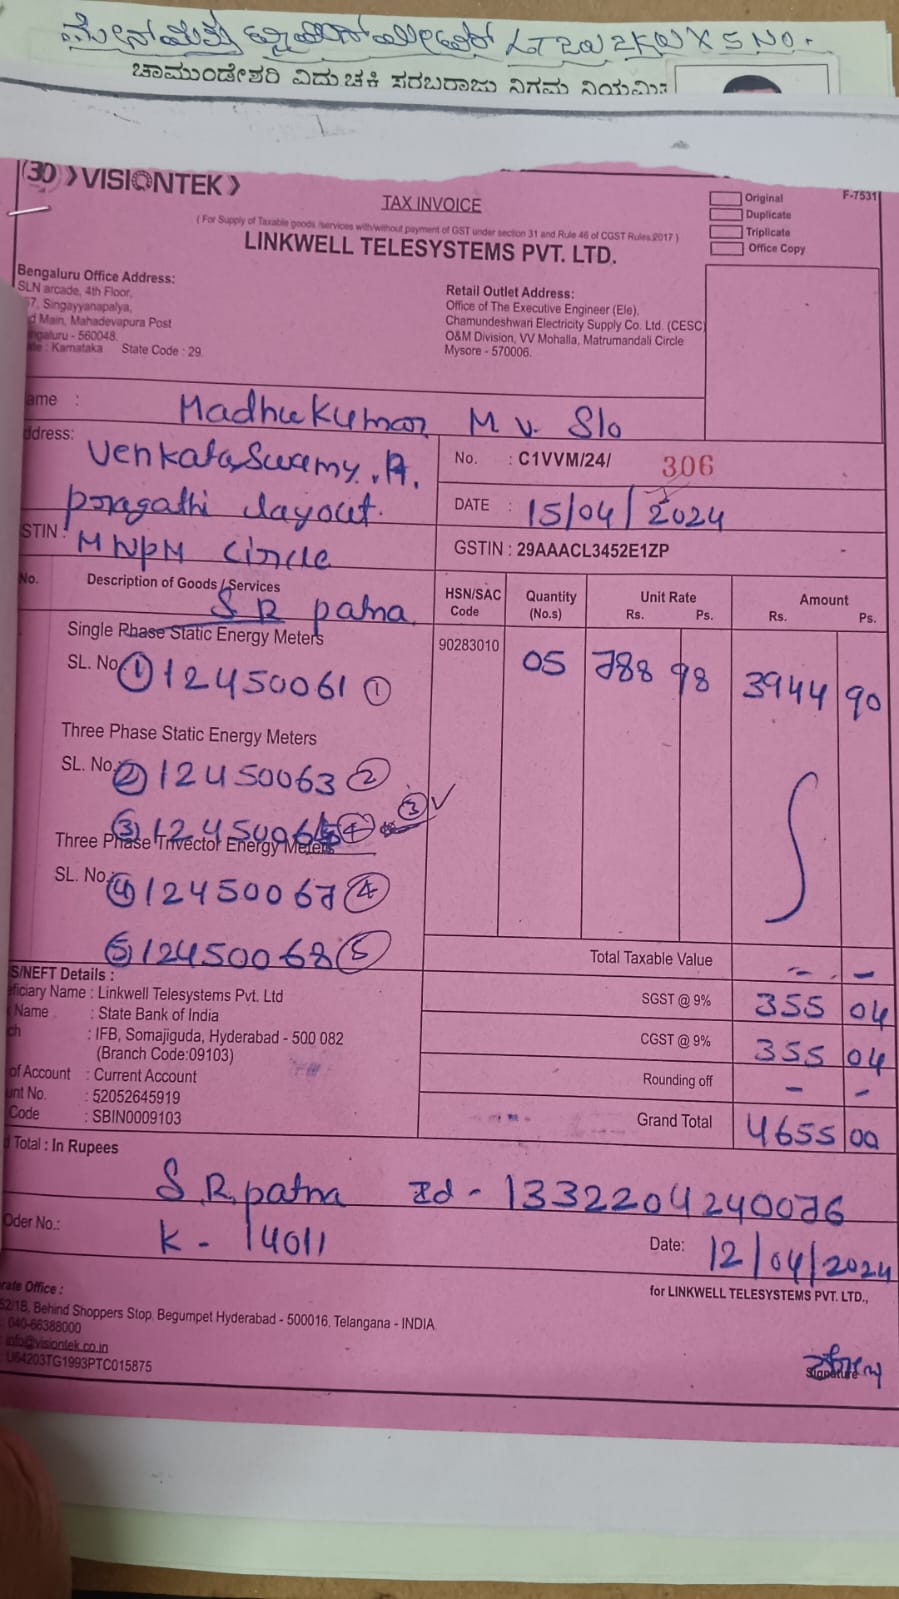 LT 2W 2KW X 5 NO.
ಚಾಮುಂಡೇಶ್ವರಿ ವಿದ್ಯುಚ್ಛಕ್ತಿ ಸರಬರಾಜು ನಿಗಮ ನಿಯಮಿತ
VISIONTEK
TAX INVOICE
Original
F-7531
Duplicate
Triplicate
Office Copy
( For Supply of Taxable goods /services with/without payment of GST under section 31 and Rule 46 of CGST Rules,2017 )
LINKWELL TELESYSTEMS PVT. LTD.
Bengaluru Office Address:
SLN arcade, 4th Floor,
Singayyanapalya,
Main, Mahadevapura Post
- 560048.
: Karnataka State Code : 29.
Retail Outlet Address:
Office of The Executive Engineer (Ele),
Chamundeshwari Electricity Supply Co. Ltd. (CESC)
O&M Division, VV Mohalla, Matrumandali Circle
Mysore - 570006.
ame : Madhukumar M.V. S/o
ddress: Venkataswamy.
No. : C1VVM/24/ 306
pragathi layout.
DATE : 15/04/2024
STIN : MNPM circle
GSTIN : 29AAACL3452E1ZP
No. Description of Goods / Services HSN/SAC Code Quantity (No.s) Unit Rate Rs. Ps. Amount Rs. Ps.
S R patna
Single Phase Static Energy Meters 90283010 05 788 98 3944 90
SL. No. ① 12450061 ①
Three Phase Static Energy Meters
SL. No. ② 12450063 ②
③ ✓
Three Phase Trivector Energy Meters
SL. No. ④ 12450067 ④
⑤ 12450068 ⑤
Total Taxable Value - -
S/NEFT Details :
eficiary Name : Linkwell Telesystems Pvt. Ltd
SGST @ 9% 355 04
Name : State Bank of India
ch : IFB, Somajiguda, Hyderabad - 500 082
(Branch Code:09103)
CGST @ 9% 355 04
of Account : Current Account
Rounding off - -
unt No. : 52052645919
Code : SBIN0009103
Grand Total 4655 00
Total : In Rupees
S R patna Id - 1332204240076
Oder No.: K - 14011
Date: 12/04/2024
rate Office :
for LINKWELL TELESYSTEMS PVT. LTD.,
Behind Shoppers Stop, Begumpet Hyderabad - 500016, Telangana - INDIA.
: 040-66388000
info@visiontek.co.in
U64203TG1993PTC015875
Signature